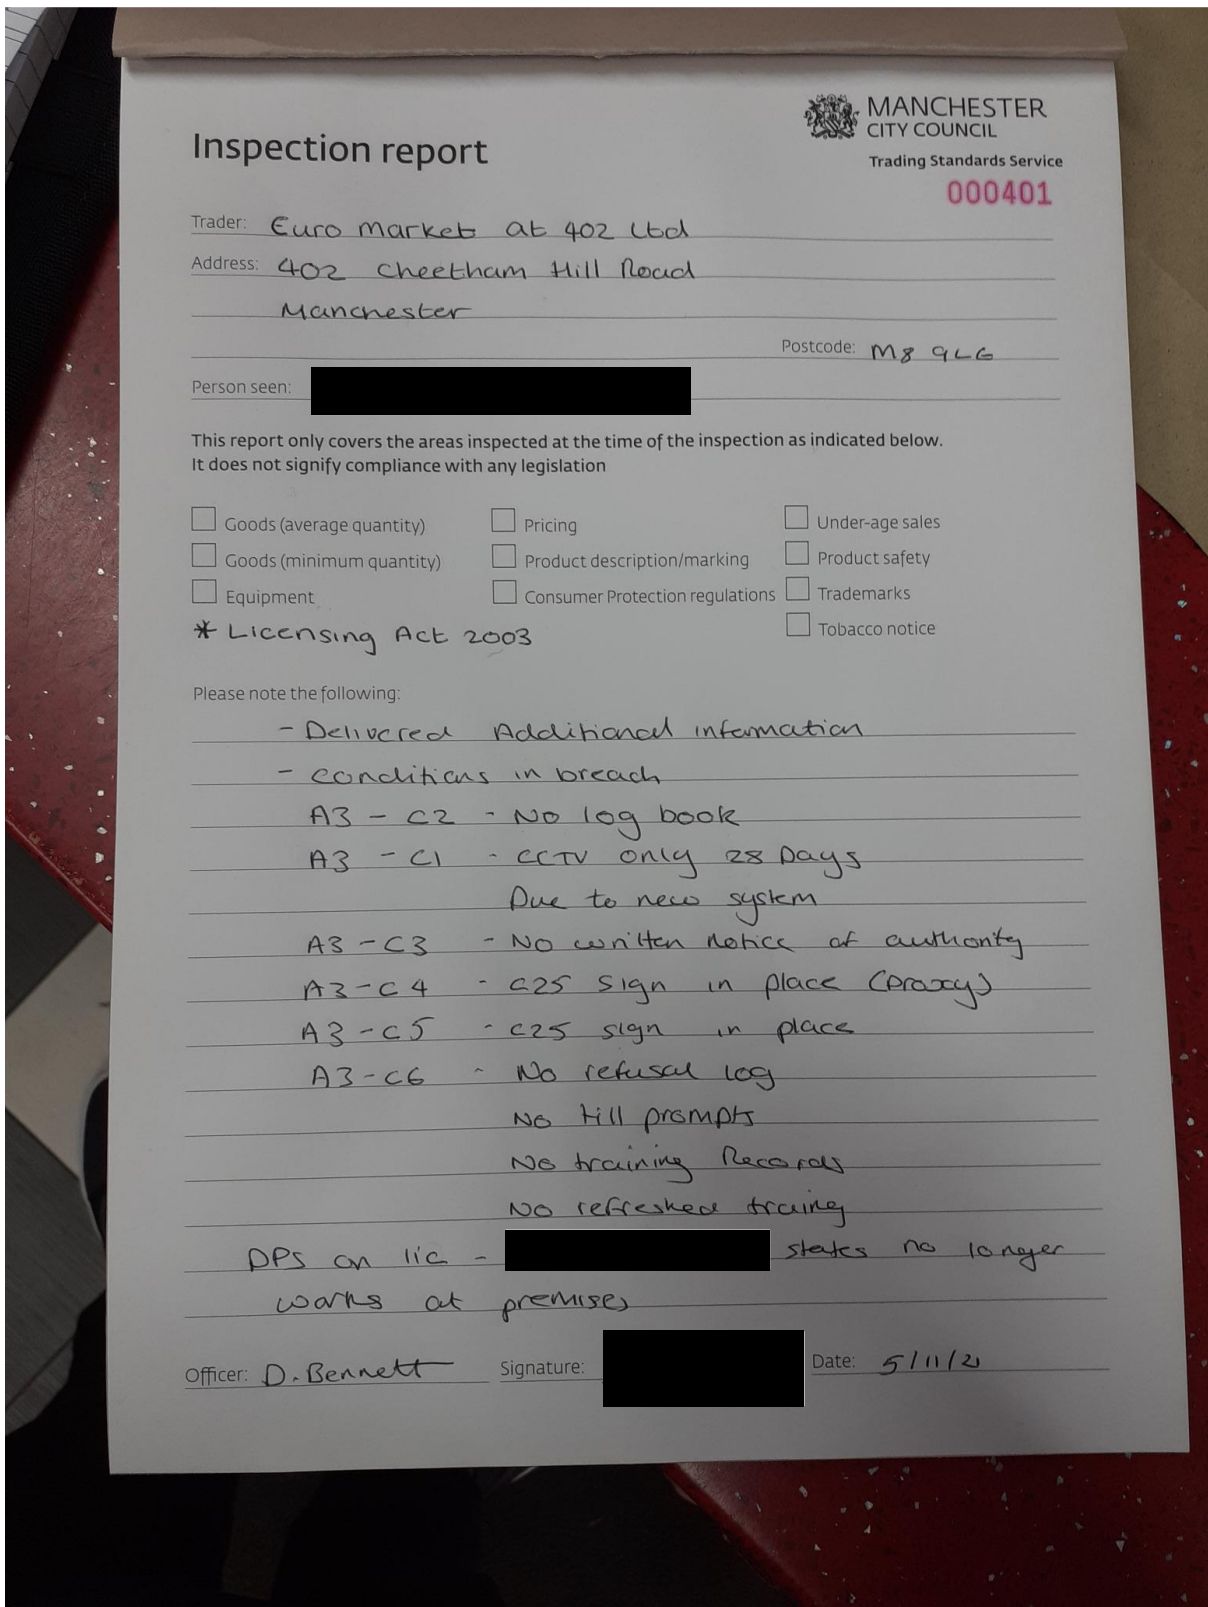 MANCHESTER
CITY COUNCIL
Inspection report
Trading Standards Service
000401
Trader: Euro Market at 402 Ltd
Address: 402 Cheetham Hill Road
Manchester
Postcode: M8 9LG
Person seen:
This report only covers the areas inspected at the time of the inspection as indicated below.
It does not signify compliance with any legislation
Goods (average quantity) Pricing Under-age sales
Goods (minimum quantity) Product description/marking Product safety
Equipment Consumer Protection regulations Trademarks
* Licensing Act 2003 Tobacco notice
Please note the following:
- Delivered Additional information
- conditions in breach
A3 - C2 - No log book
A3 - C1 - CCTV only 28 Days
Due to new system
A3 - C3 - No written notice of authority
A3 - C4 - C25 sign in place (proxy)
A3 - C5 - C25 sign in place
A3 - C6 - No refusal log
No till prompts
No training Records
No refreshed traing
DPS on lic - states no longer
works at premises
Officer: D. Bennett Signature: Date: 5/11/21